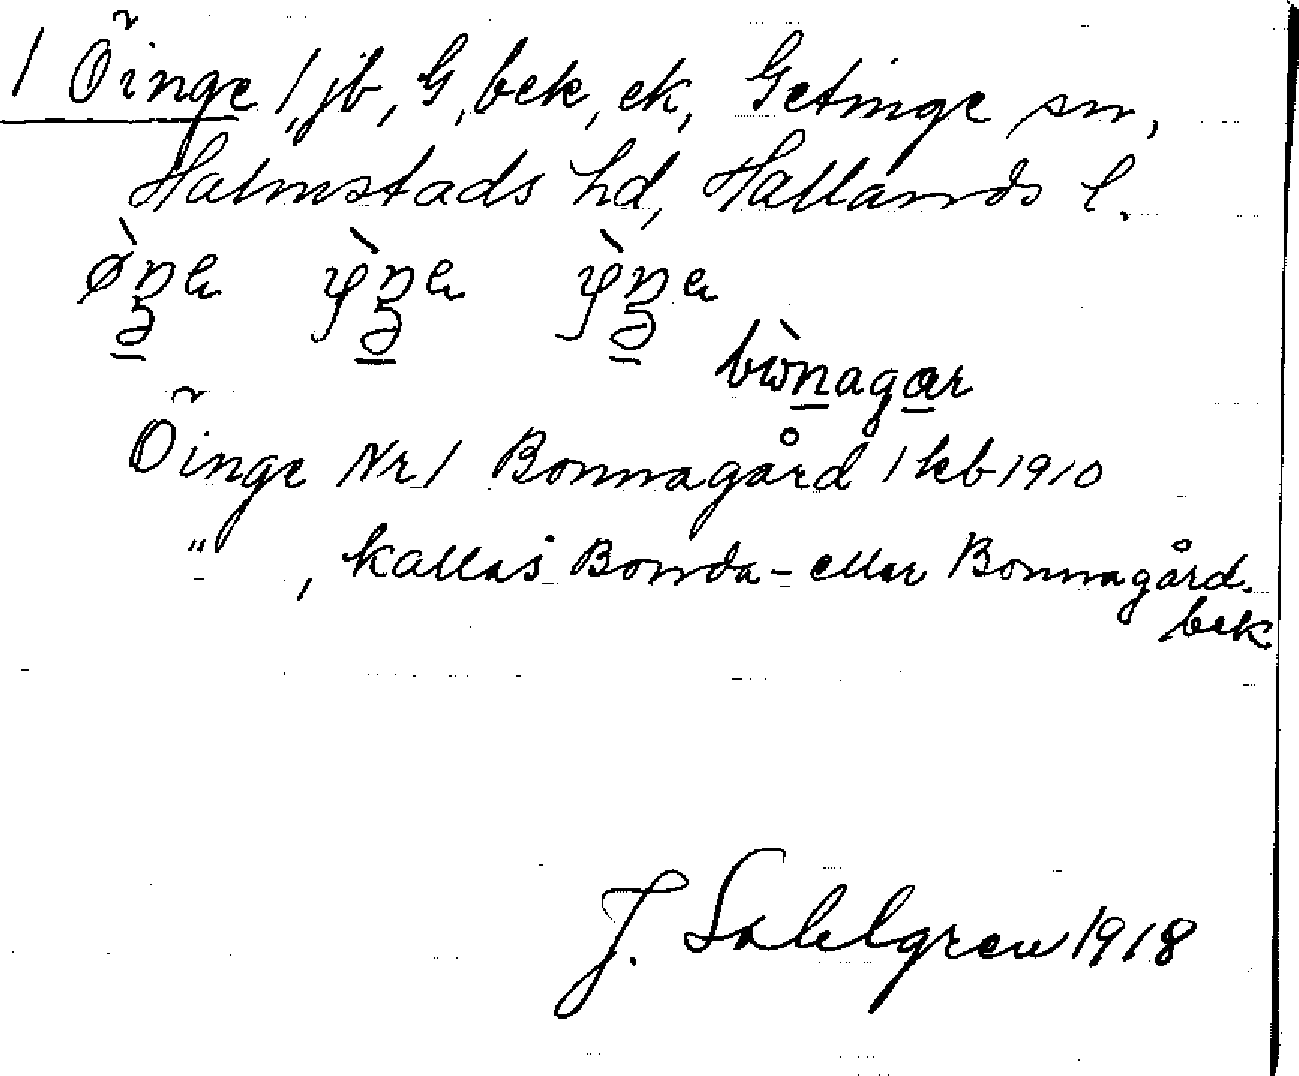 1 Öinge 1, jb, G, bek, ek, Getinge sn,
Halmstads hd, Hallands l.
Öinge Nr 1 Bonnagård 1 kb 1910
" , kallas Bonda- eller Bonnagård.
bek
J. Sahlgren 1918